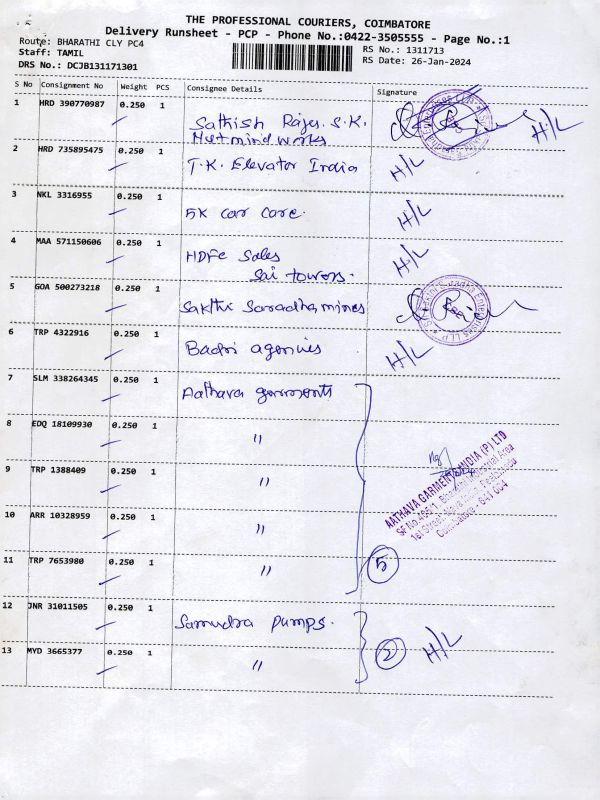 THE PROFESSIONAL COURIERS, COIMBATORE
Delivery Runsheet - PCP - Phone No.:0422-3505555 - Page No.:1
Route: BHARATHI CLY PC4 RS No.: 1311713
Staff: TAMIL RS Date: 26-Jan-2024
DRS No.: DCJB131171301
S No Consignment No Weight PCS Consignee Details Signature
1 HRD 390770987 0.250 1 Sathish Rajes. S.K.
works H/L
2 HRD 735895475 0.250 1 T.K. Elevator India H/L
3 NKL 3316955 0.250 1 5K car care. H/L
4 MAA 571150606 0.250 1 HDFC Sales H/L
Sai towers.
5 GOA 500273218 0.250 1 Sakthi Saradha mines
6 TRP 4322916 0.250 1 Badri agencies H/L
7 SLM 338264345 0.250 1 Aathava garments
8 EDQ 18109930 0.250 1 "
9 TRP 1388409 0.250 1 "
AATHAVA GARMENTS INDIA (P) LTD
Coimbatore - 641 004
10 ARR 10328959 0.250 1 "
11 TRP 7653980 0.250 1 " 5
12 JNR 31011505 0.250 1 Samudra pumps.
13 MYD 3665377 0.250 1 " 2 H/L